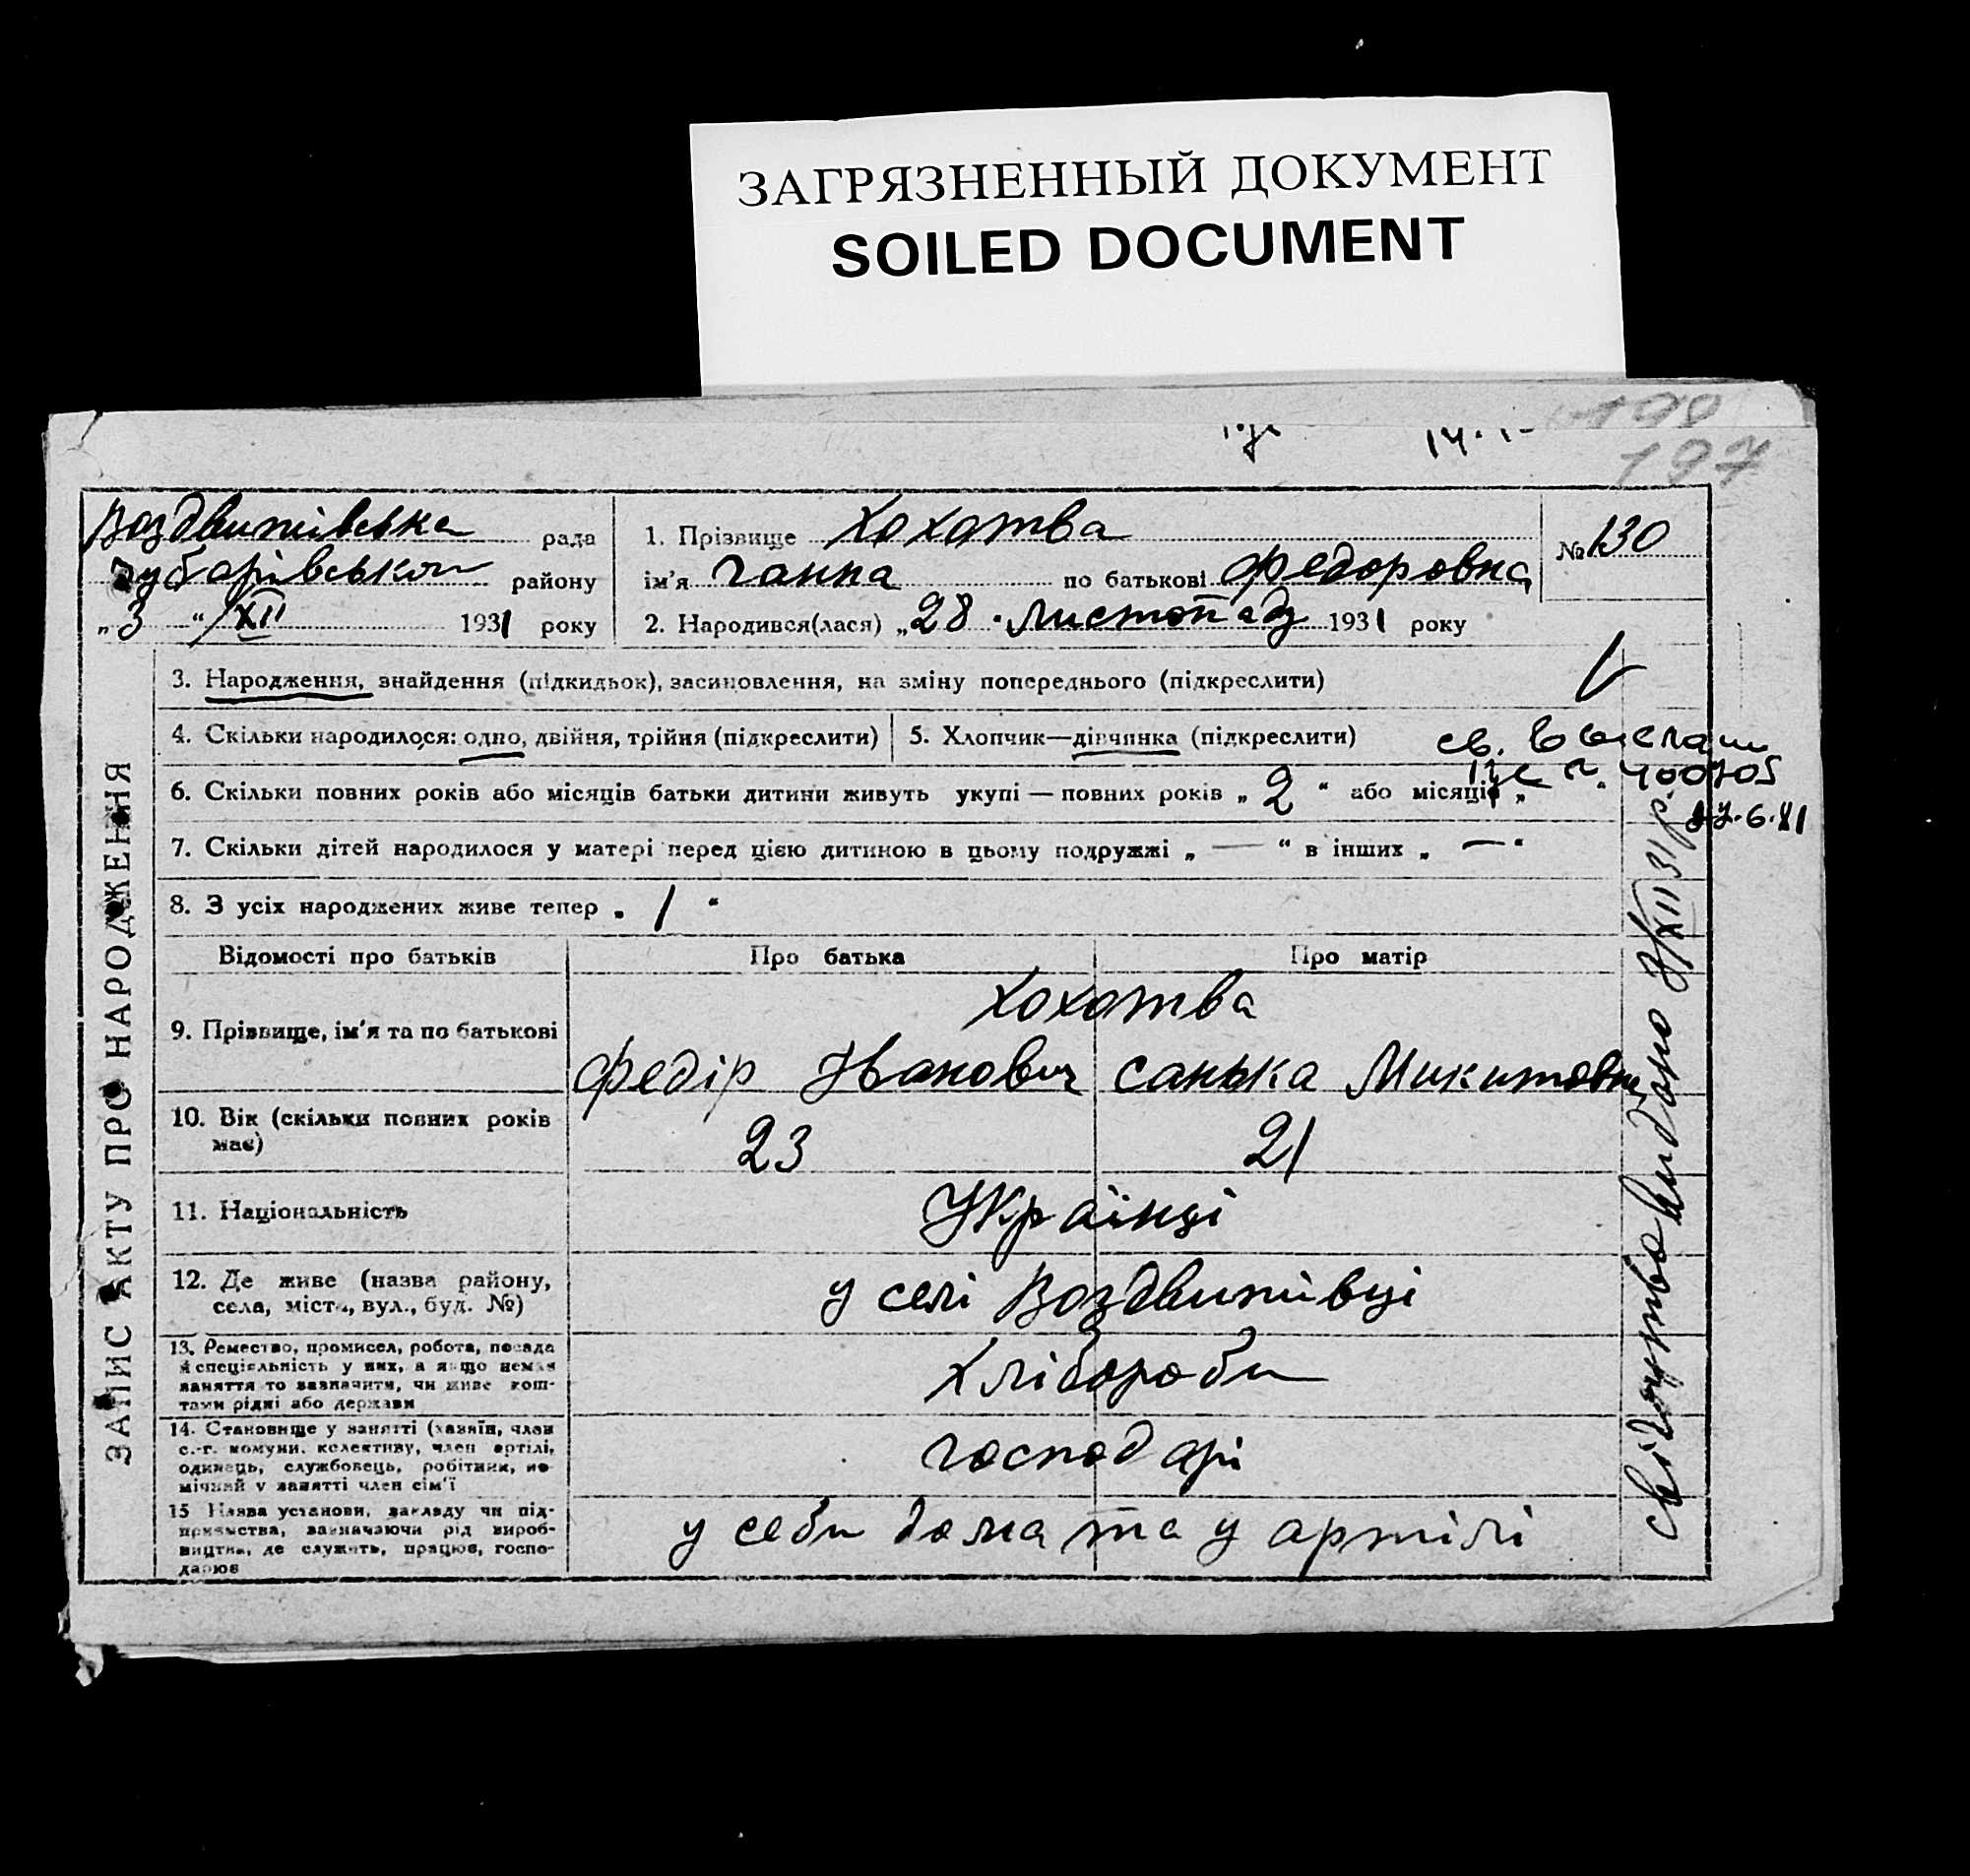 ЗАГРЯЗНЕННЫЙ ДОКУМЕНТ
SOILED DOCUMENT
198
197
Воздвижівська рада
району
„3 “ / XII 1931 року
1. Прізвище Хохотва
ім'я Ганна по батькові Федоровна
2. Народився(лася) „28 Листопад 1931 року
№ 130
ЗАПИС АКТУ ПРО НАРОДЖЕННЯ
3. Народження, знайдення (підкидьок), засиновлення, на зміну попереднього (підкреслити)
4. Скільки народилося: одно, двійня, трійня (підкреслити)
5. Хлопчик—дівчинка (підкреслити)
св.
400705
27.6.81
6. Скільки повних років або місяців батьки дитини живуть укупі — повних років „ 2 “ або місяців „ “
7. Скільки дітей народилося у матері перед цією дитиною в цьому подружжі „ — “ в інших „ — “
8. З усіх народжених живе тепер „ 1 “
Відомості про батьків
Про батька
Про матір
9. Прізвище, ім'я та по батькові
Хохотва
Федір Іванович
Санька Микитовна
10. Вік (скільки повних років
має)
23
21
11. Національність
Українці
12. Де живе (назва району,
села, міста, вул., буд. №)
у селі Воздвижівці
13. Ремество, промисел, робота, посада
й спеціяльність у них, а якщо немає
заняття то зазначити, чи живе кош-
тами рідні або держави
Хлібороби
14. Становище у занятті (хазяїн, член
с.-г. комуни, колективу, член артілі,
одинець, службовець, робітник, по-
мічний у занятті член сім'ї
господарі
15 Назва установи, закладу чи під-
приємства, зазначаючи рід вироб-
ництва, де служить, працює, госпо-
дарює
у себи дома та у артілі
свідоцтво видано 3/XII 31 р.